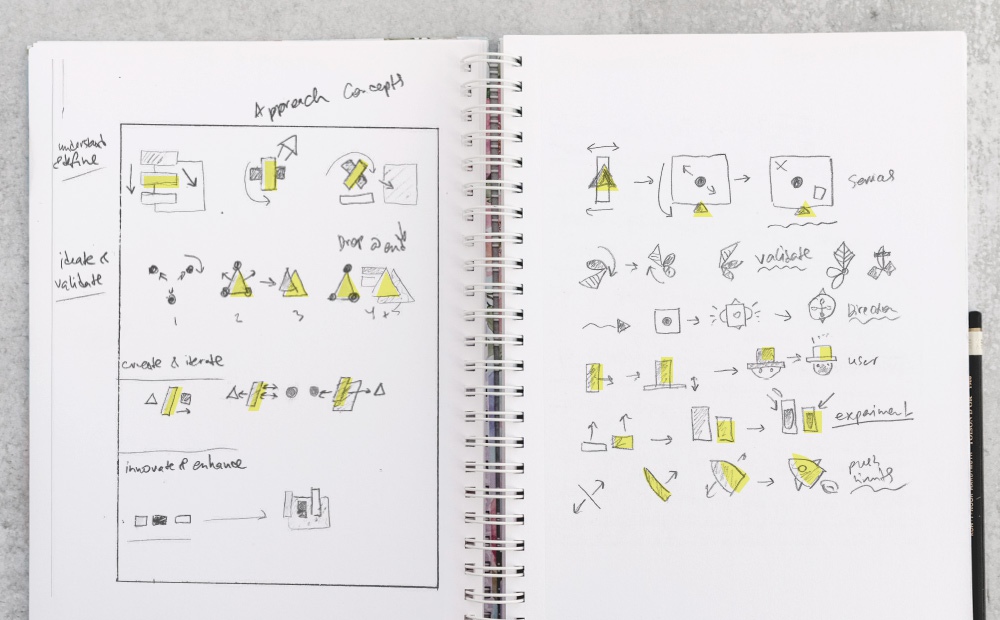 Approach Concepts
understand
& define
ideate &
validate
Drop @ end
1
2
3
4 + 5
create & iterate
innovate & enhance
validate
Direction
user
experiment
push
limits